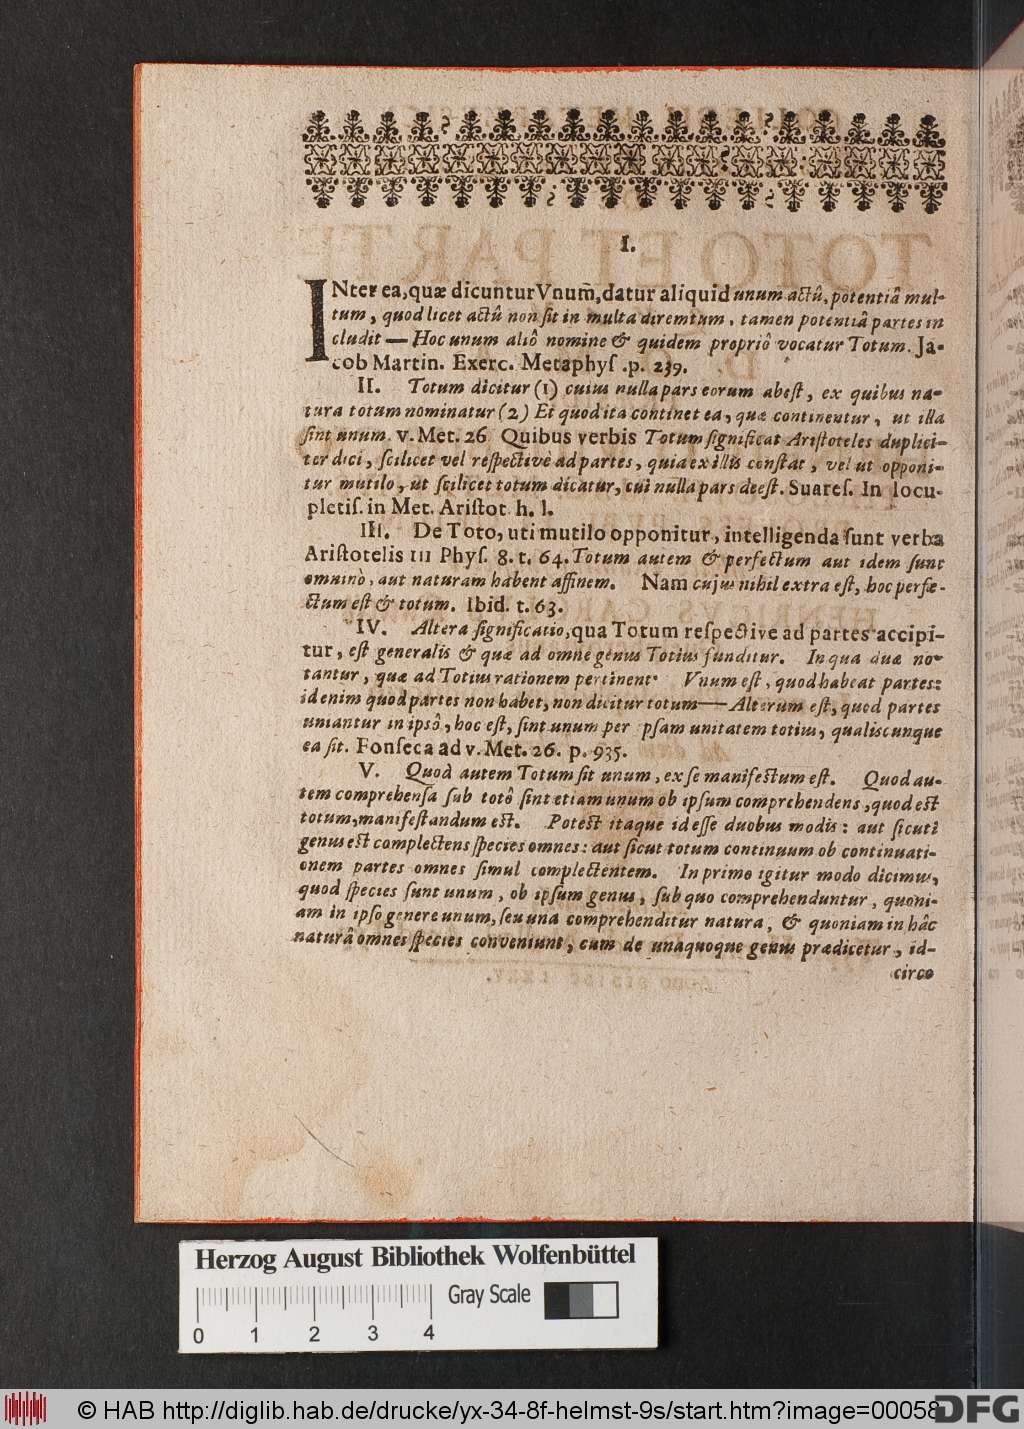 I.
INter ea, quæ dicuntur Vnum̃, datur aliquid unum actû, potentiâ mul-
tum, quod licet actû non ſit in multa diremtum, tamen potentiâ partes in
cludit — Hoc unum aliô nomine & quidem propriô vocatur Totum. Ja-
cob Martin. Exerc. Metaphyſ. p. 239.
II. Totum dicitur (1) cuius nulla pars eorum abeſt, ex quibus na-
tura totum nominatur (2) Et quod ita continet ea, quæ continentur, ut illa
ſint unum. v. Met. 26 Quibus verbis Totum ſignificat Ariſtoteles duplici-
ter dici, ſcilicet vel reſpectivè ad partes, quia ex illis conſtat, vel ut opponi-
tur mutilo, ut ſcilicet totum dicatur, cui nulla pars deeſt. Suareſ. In locu-
pletiſ. in Met. Ariſtot. h. l.
III. De Toto, uti mutilo opponitur, intelligenda ſunt verba
Ariſtotelis III Phyſ. 8. t. 64. Totum autem & perfectum aut idem ſunt
omninò, aut naturam habent affinem. Nam cujus nihil extra eſt, hoc perfe-
ctum eſt & totum. Ibid. t. 63.
IV. Altera ſignificatio, qua Totum reſpective ad partes accipi-
tur, eſt generalis & quæ ad omne genus Totius funditur. In qua duæ no-
tantur, quæ ad Totius rationem pertinent. Vnum eſt, quod habeat partes:
id enim quod partes non habet, non dicitur totum — Alterum eſt, quod partes
uniantur in ipsô, hoc eſt, ſint unum per ipſam unitatem totius, qualiscunque
ea ſit. Fonſeca ad v. Met. 26. p. 935.
V. Quod autem Totum ſit unum, ex ſe manifeſtum eſt. Quod au-
tem comprehenſa ſub totô ſint etiam unum ob ipſum comprehendens, quod eſt
totum, manifeſtandum eſt. Poteſt itaque id eſſe duobus modis: aut ſicuti
genus eſt complectens ſpecies omnes: aut ſicut totum continuum ob continuati-
onem partes omnes ſimul complectentem. In primo igitur modo dicimus,
quod ſpecies ſunt unum, ob ipſum genus, ſub quo comprehenduntur, quoni-
am in ipſo genere unum, ſeu una comprehenditur natura, & quoniam in hâc
naturâ omnes ſpecies conveniunt, cum de unaquoque genus prædicetur, id-
circo
Herzog August Bibliothek Wolfenbüttel
Gray Scale
0 1 2 3 4
© HAB http://diglib.hab.de/drucke/yx-34-8f-helmst-9s/start.htm?image=00058
DFG